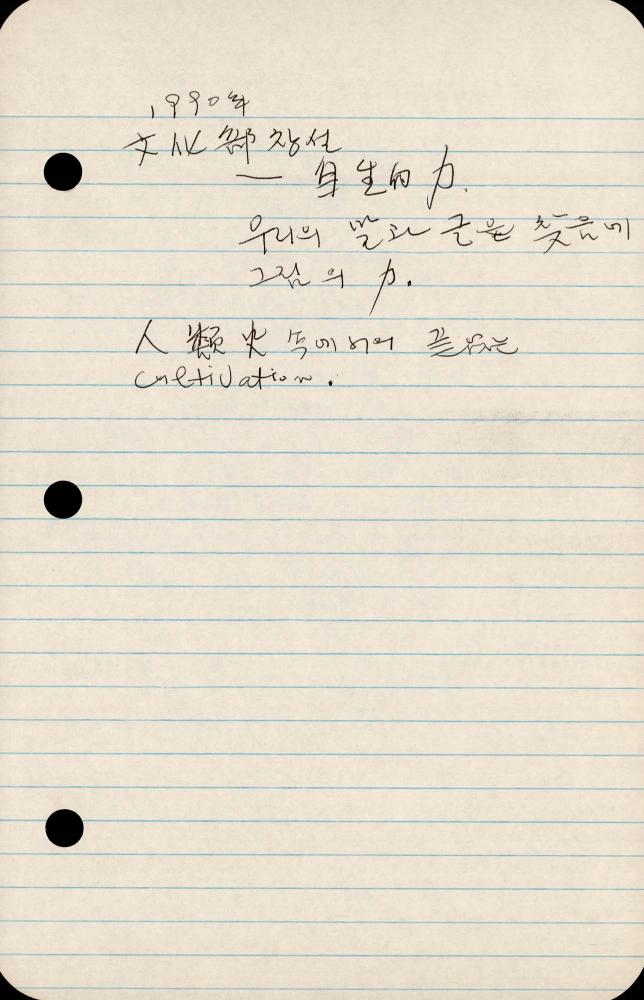 1990年
文化部 창설
— 自生的 力.
우리의 말과 글을 찾음에
그점의 力.
人類史 속에서의 끝없는
cultivation.